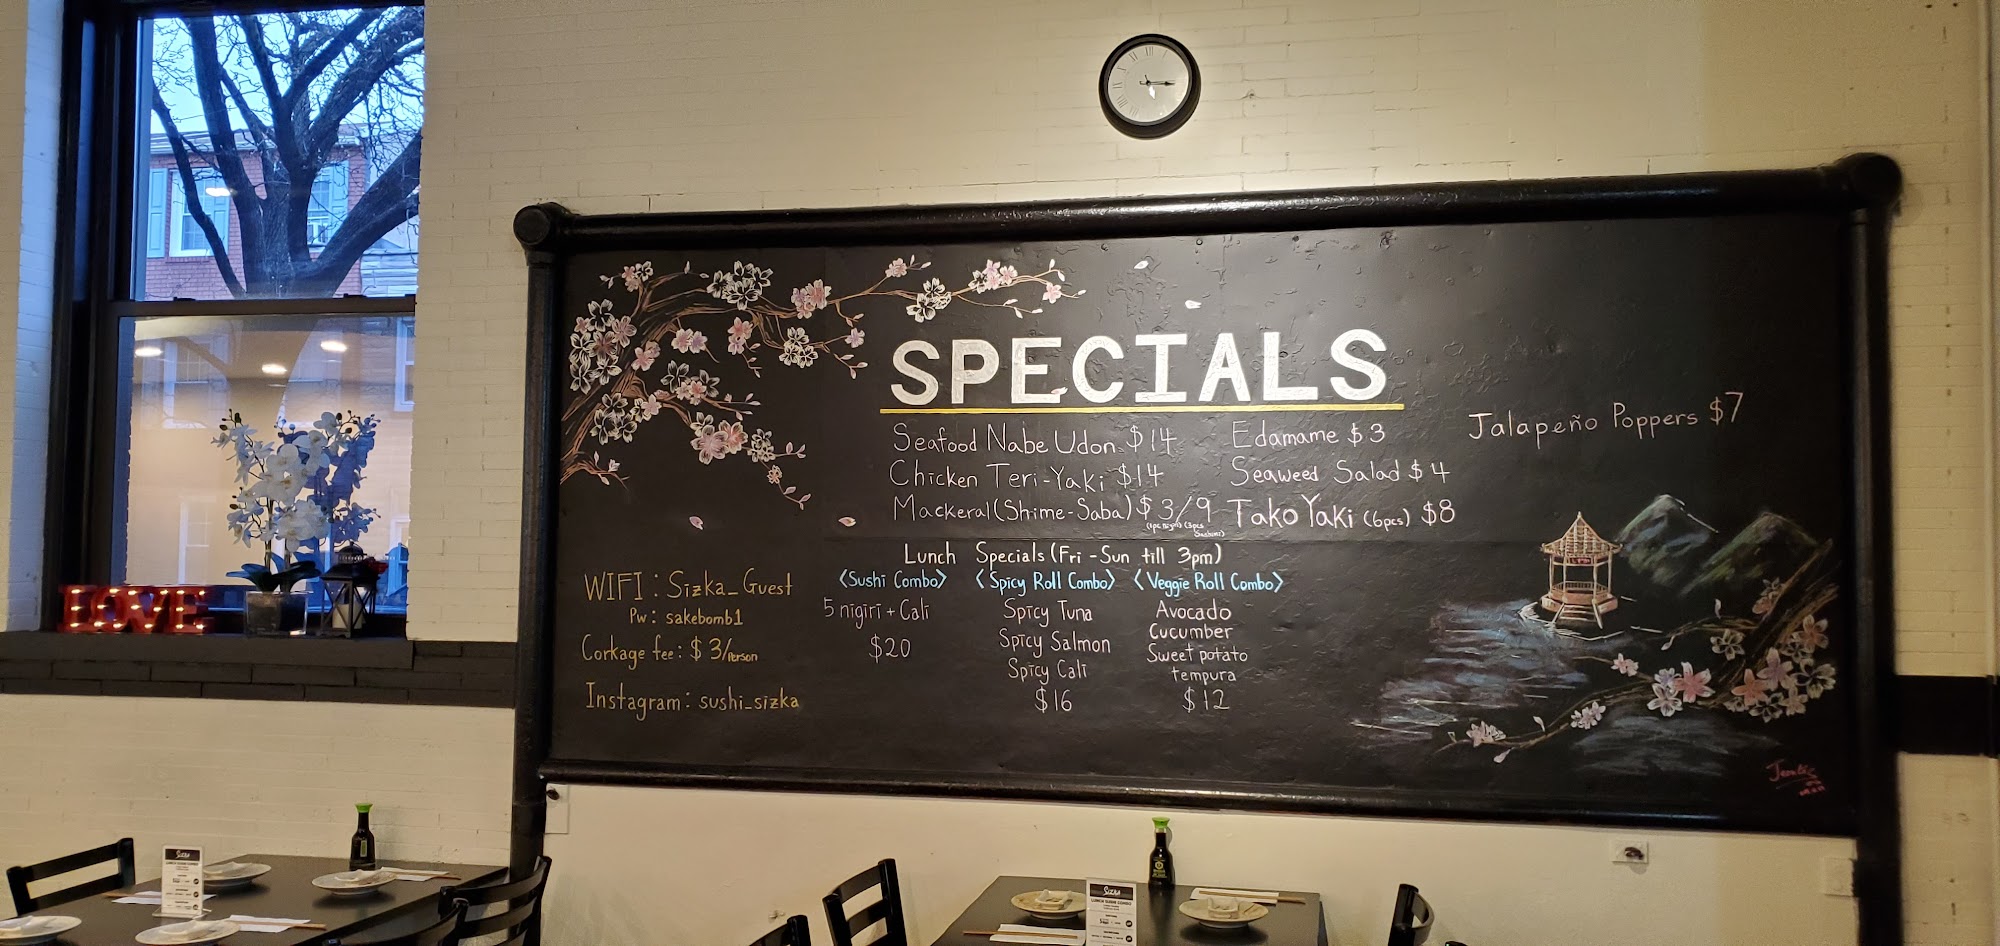 SPECIALS
Seafood Nabe Udon $14
Chicken Teri-Yaki $14
Mackeral (Shime-Saba) $3/9
Edamame $3
Seaweed Salad $4
Tako Yaki (6pcs) $8
Jalapeño Poppers $7
Lunch Specials (Fri-Sun till 3pm)
<Sushi Combo>
5 nigiri + Cali
$20
<Spicy Roll Combo>
Spicy Tuna
Spicy Salmon
Spicy Cali
$16
<Veggie Roll Combo>
Avocado
Cucumber
Sweet potato
tempura
$12
WIFI: Sizka_Guest
Pw: sakebomb1
Corkage fee: $3/Person
Instagram: sushi_sizka
LOVE
Sizka
LUNCH SUSHI COMBO
Sizka
LUNCH SUSHI COMBO